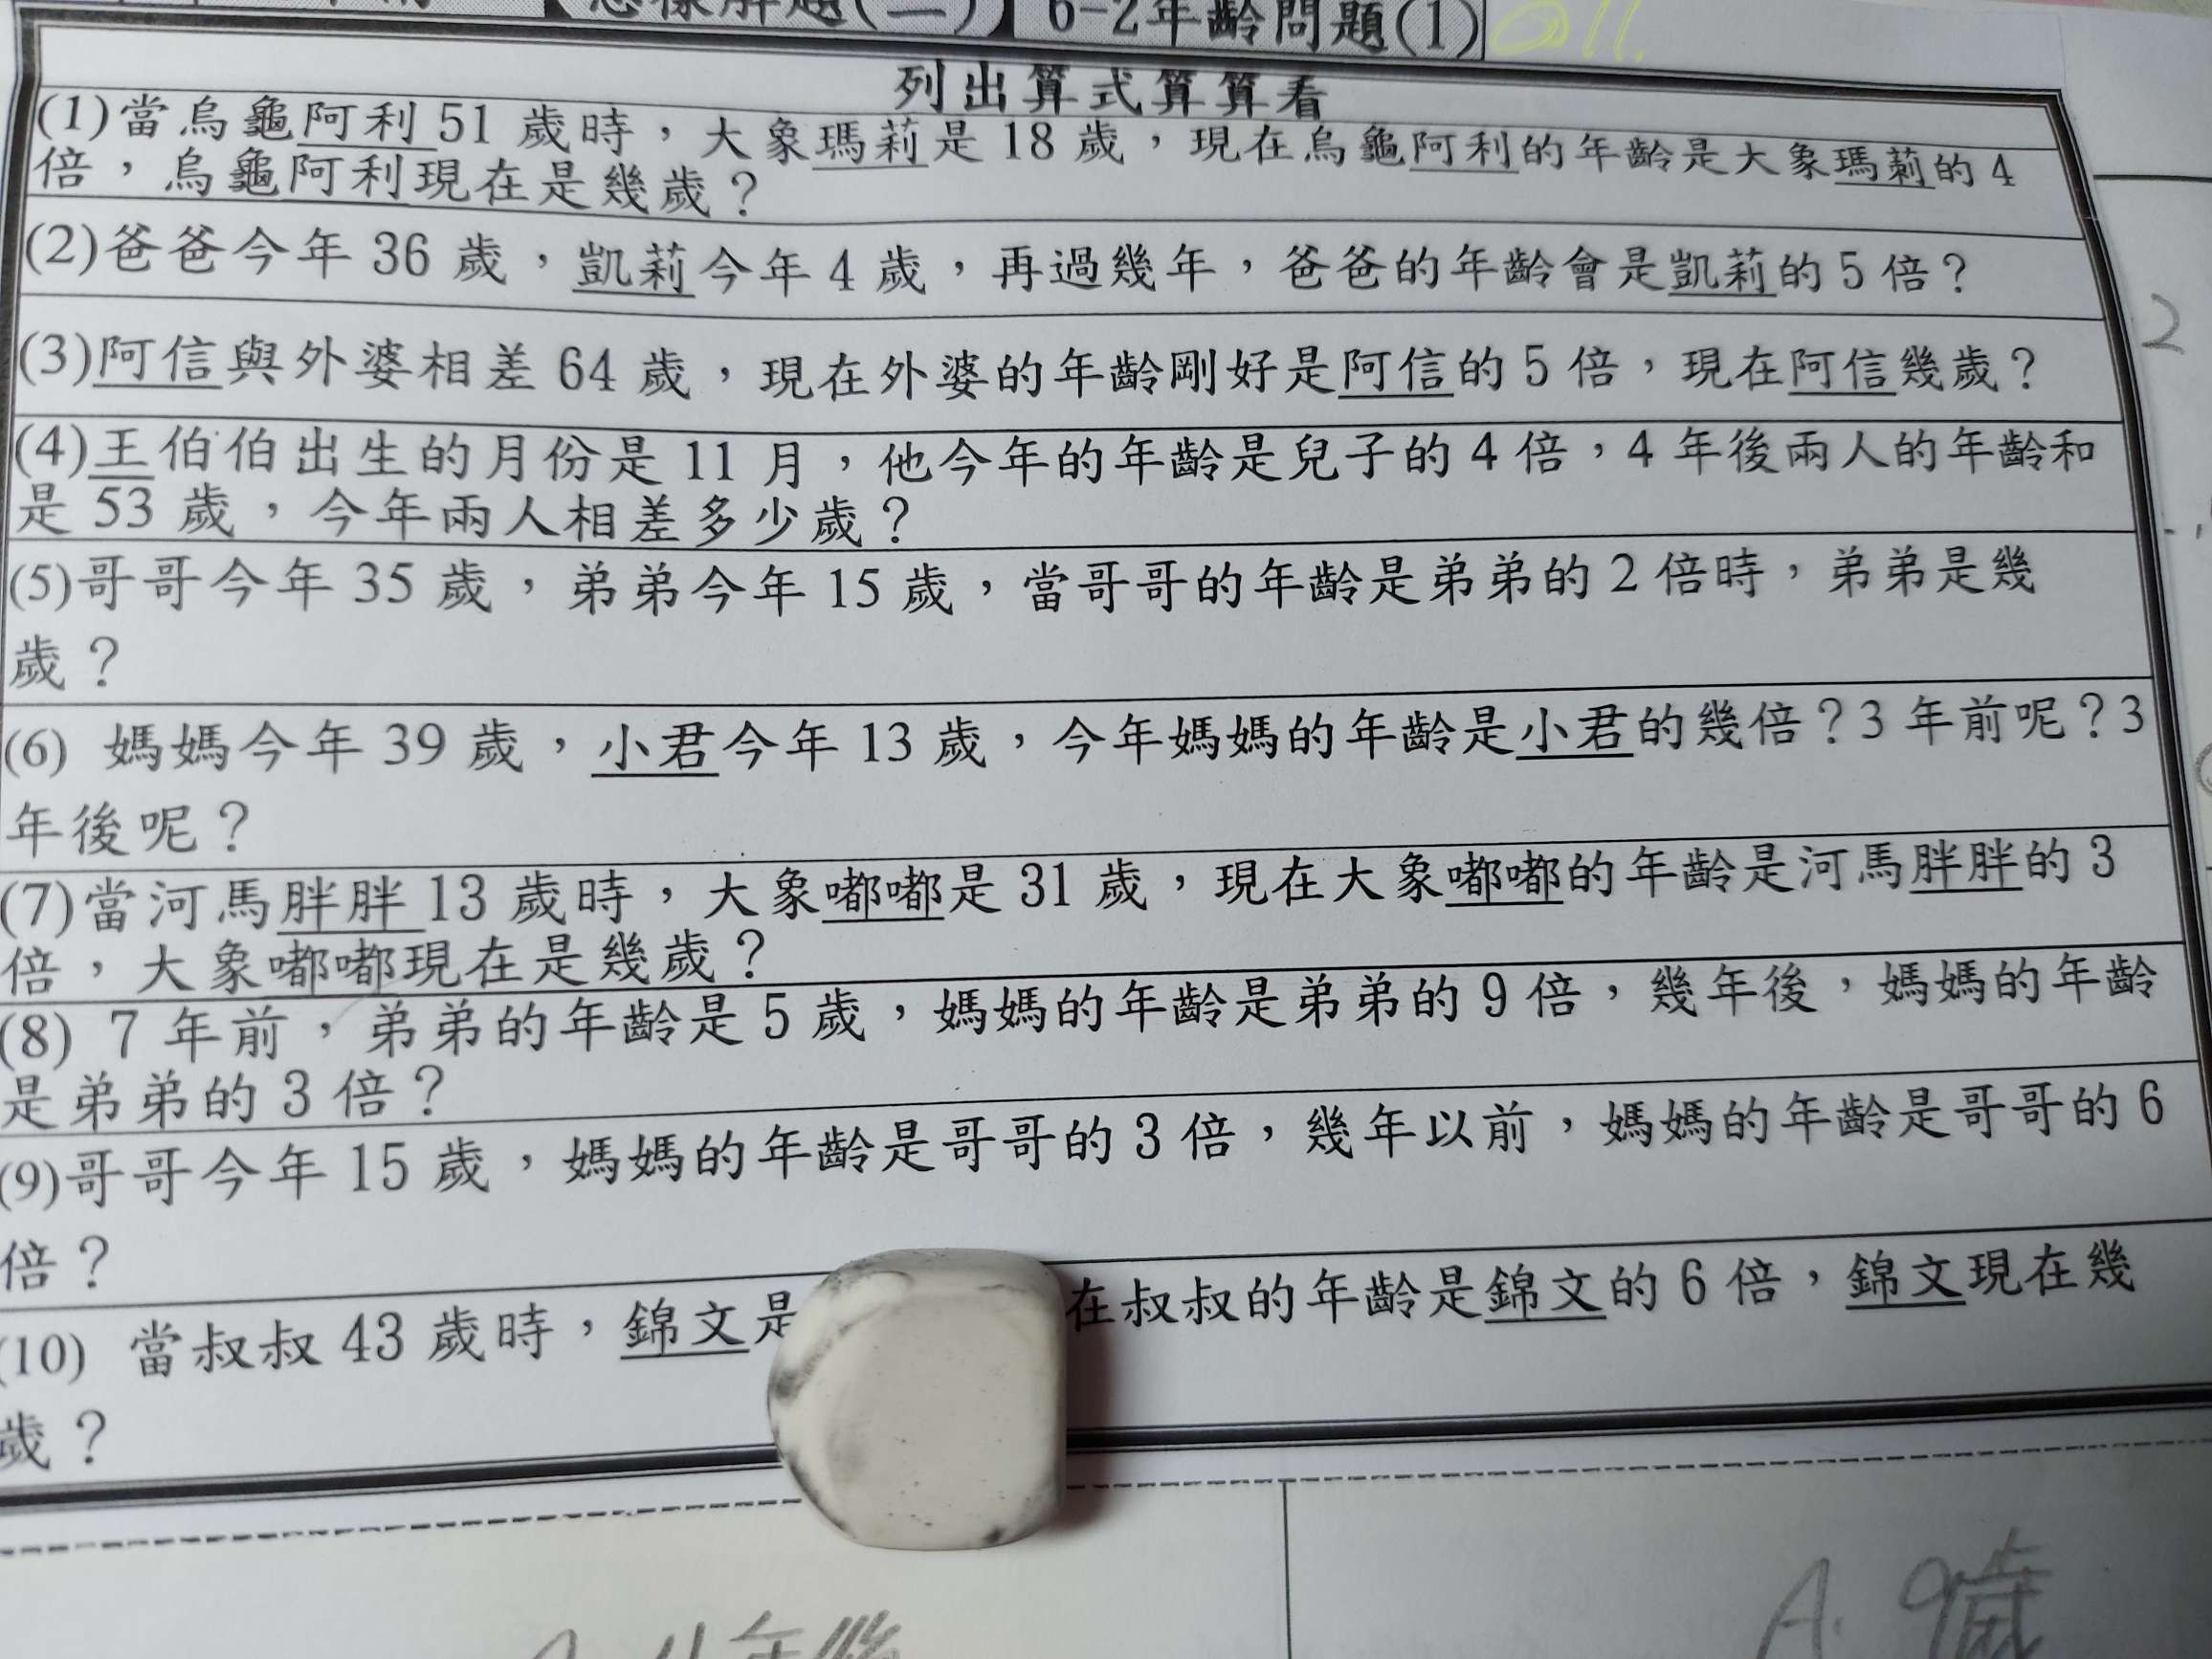 6-2年齡問題(1)
列出算式算算看
(1)當烏龜阿利51歲時，大象瑪莉是18歲，現在烏龜阿利的年齡是大象瑪莉的4
倍，烏龜阿利現在是幾歲？
(2)爸爸今年36歲，凱莉今年4歲，再過幾年，爸爸的年齡會是凱莉的5倍？
(3)阿信與外婆相差64歲，現在外婆的年齡剛好是阿信的5倍，現在阿信幾歲？
(4)王伯伯出生的月份是11月，他今年的年齡是兒子的4倍，4年後兩人的年齡和
是53歲，今年兩人相差多少歲？
(5)哥哥今年35歲，弟弟今年15歲，當哥哥的年齡是弟弟的2倍時，弟弟是幾
歲？
(6) 媽媽今年39歲，小君今年13歲，今年媽媽的年齡是小君的幾倍？3年前呢？3
年後呢？
(7)當河馬胖胖13歲時，大象嘟嘟是31歲，現在大象嘟嘟的年齡是河馬胖胖的3
倍，大象嘟嘟現在是幾歲？
(8) 7年前，弟弟的年齡是5歲，媽媽的年齡是弟弟的9倍，幾年後，媽媽的年齡
是弟弟的3倍？
(9)哥哥今年15歲，媽媽的年齡是哥哥的3倍，幾年以前，媽媽的年齡是哥哥的6
倍？
(10) 當叔叔43歲時，錦文是 在叔叔的年齡是錦文的6倍，錦文現在幾
歲？
2
A. 9歲